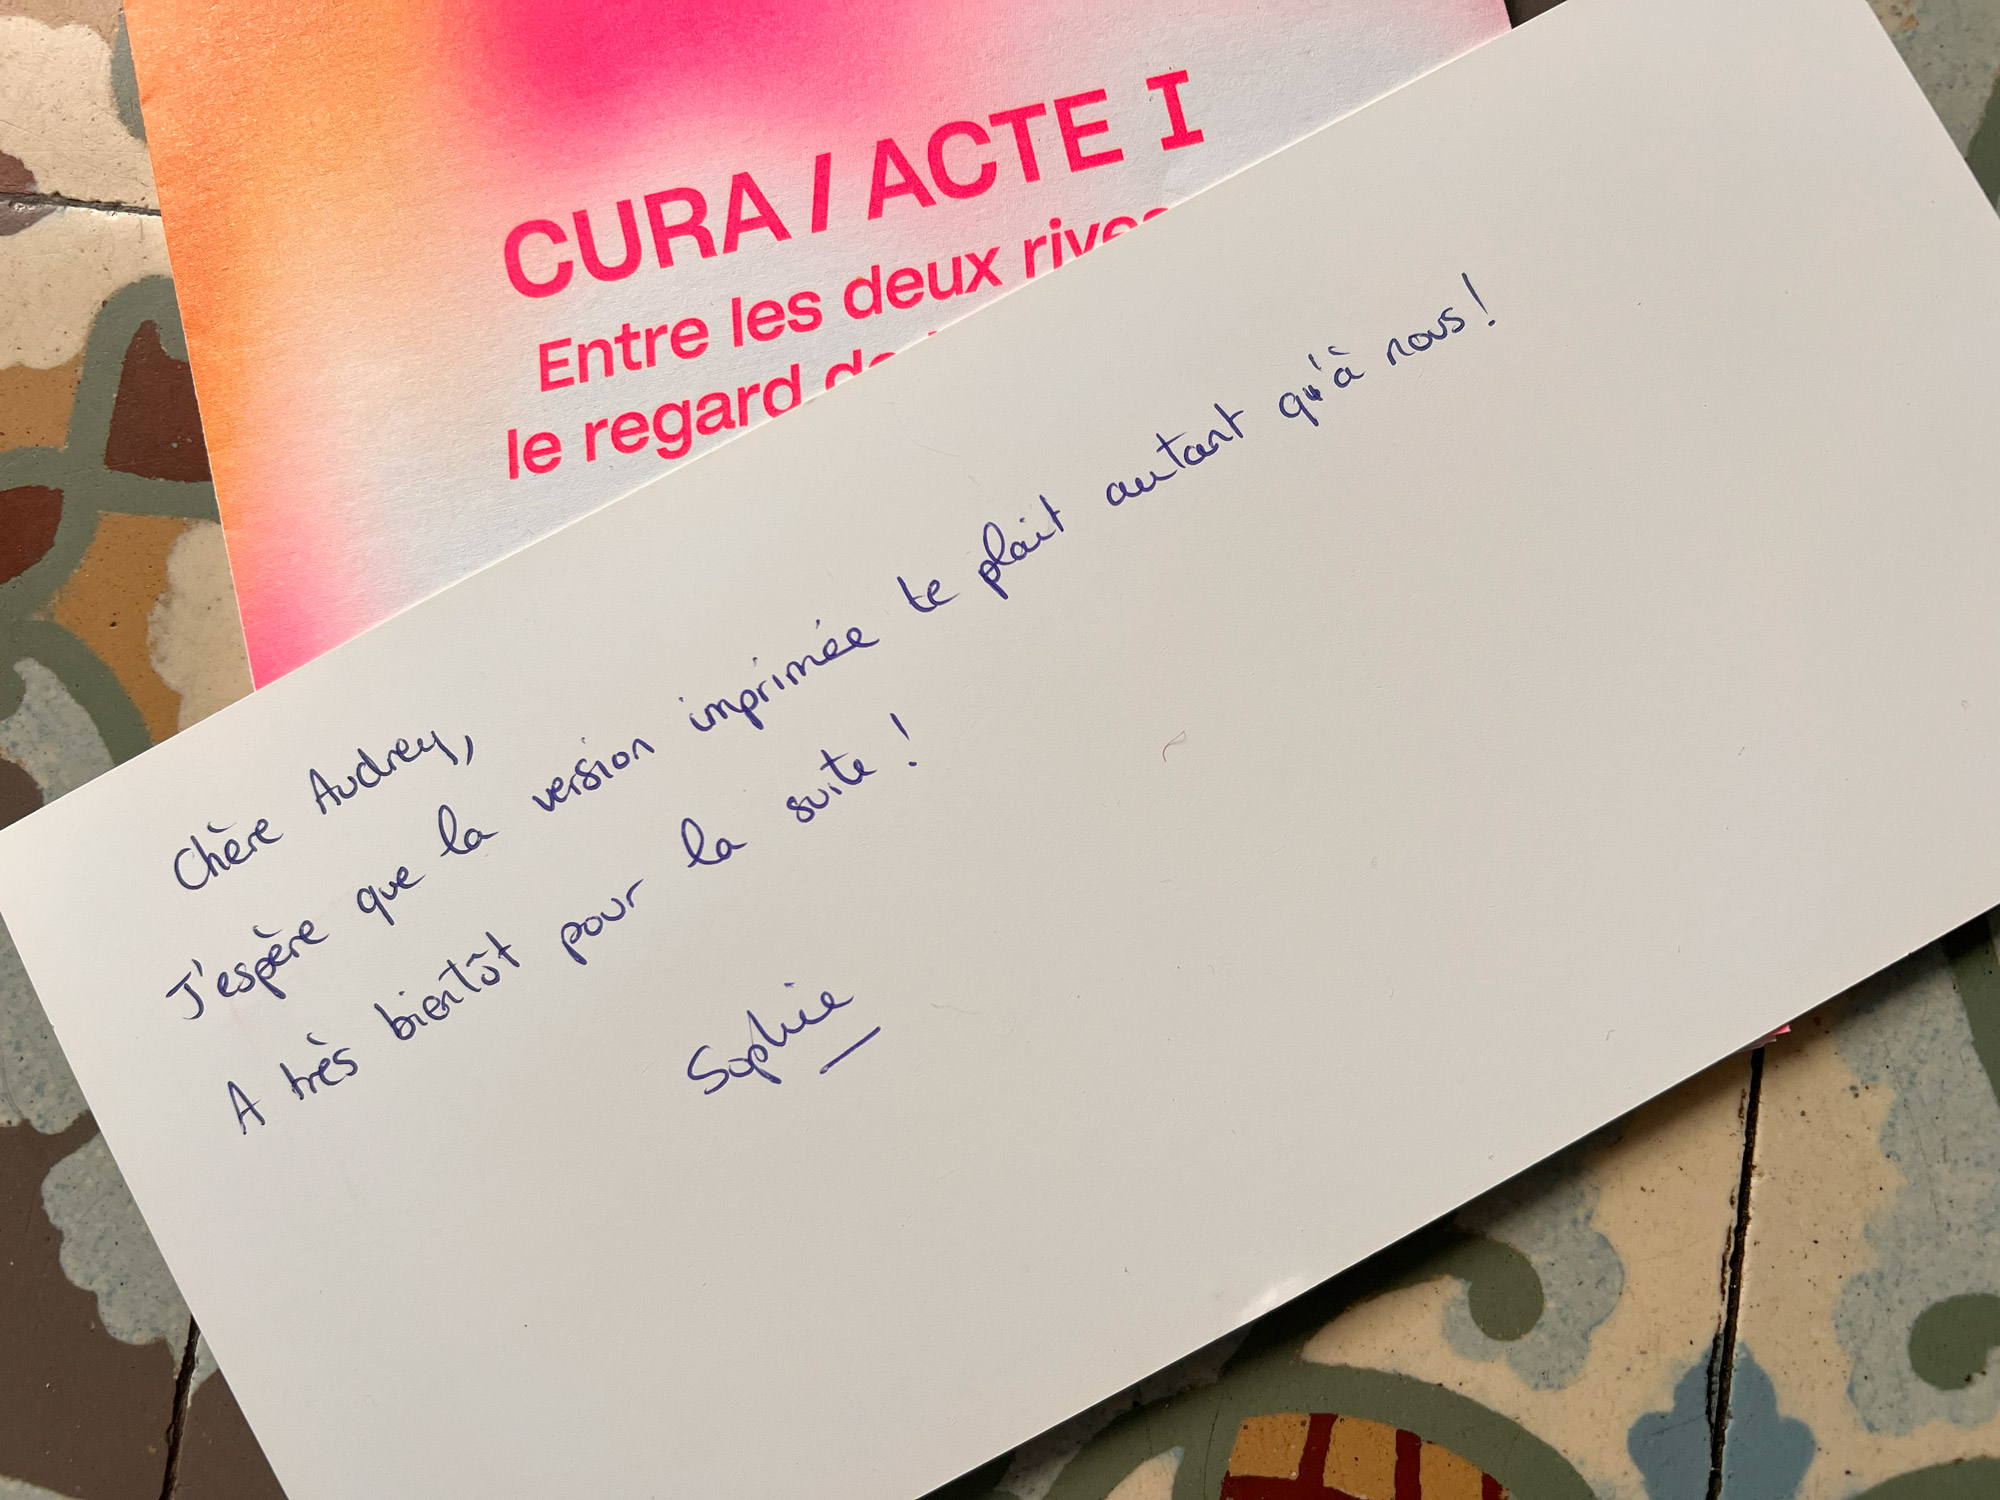 CURA / ACTE I
Entre les deux rives
le regard de
Chère Audrey,
J'espère que la version imprimée te plait autant qu'à nous !
A très bientôt pour la suite !
Sophie